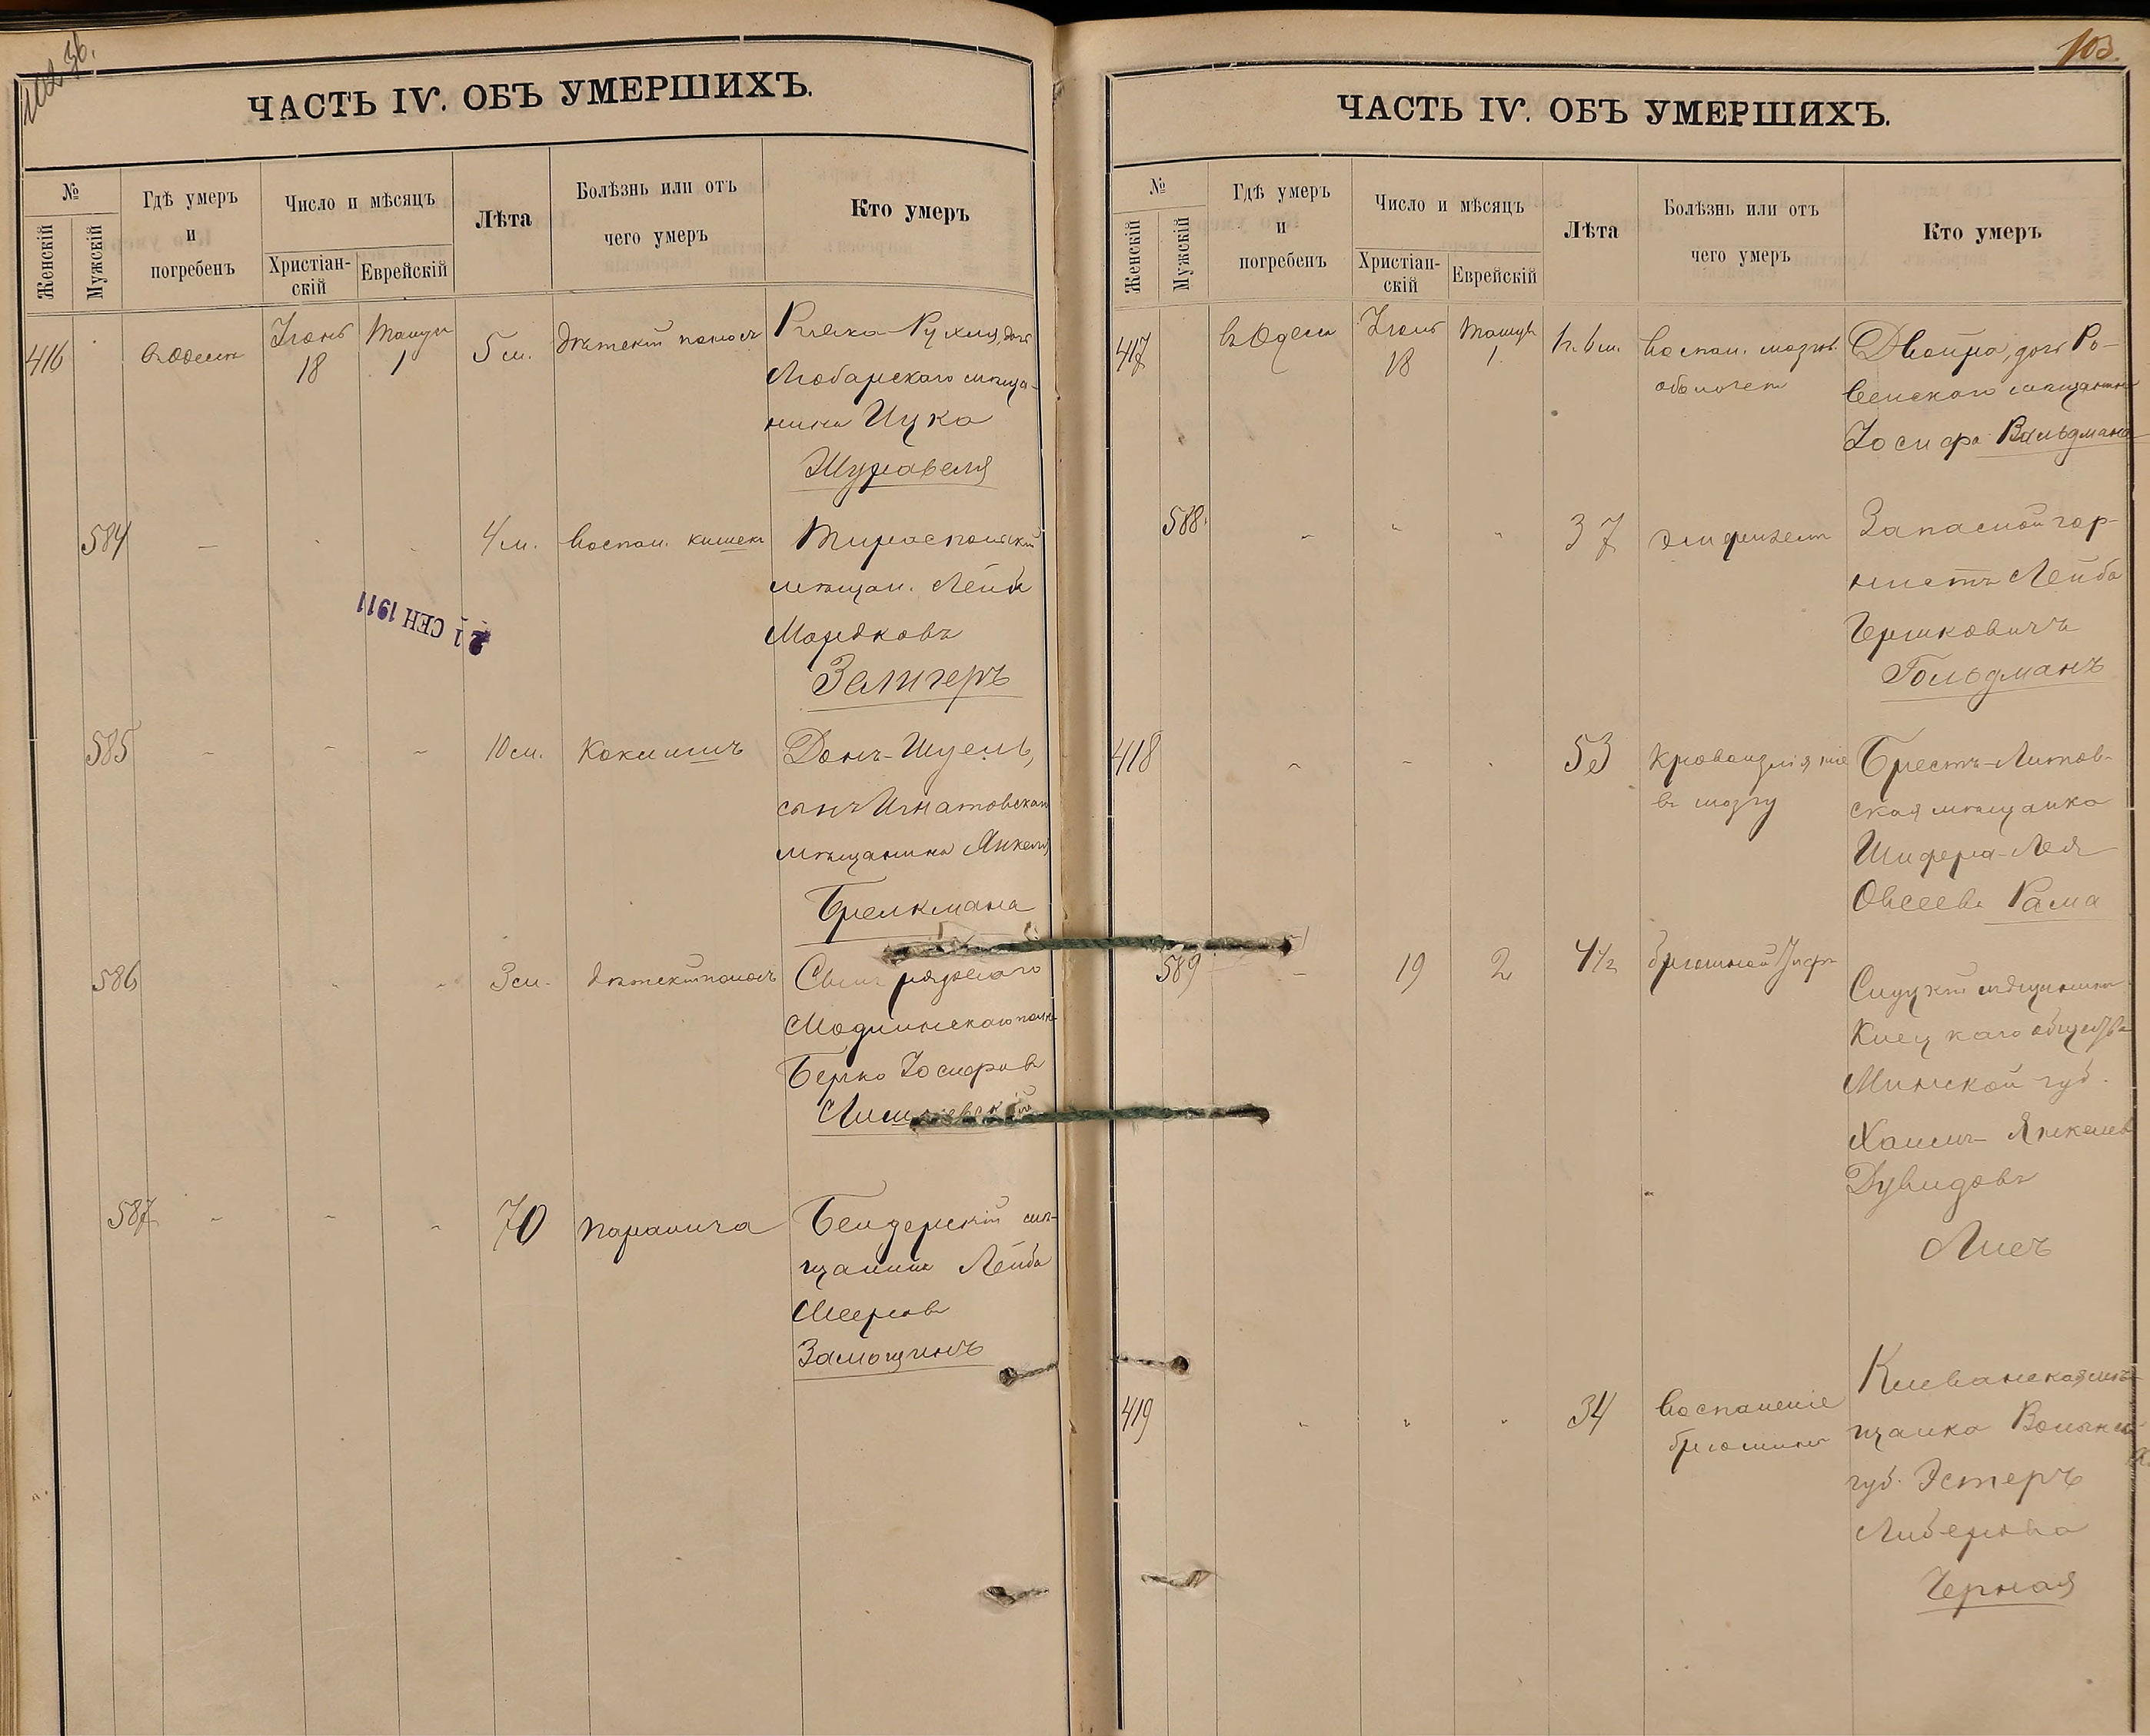 ЧАСТЬ IV. ОБЪ УМЕРШИХЪ.
№
Женскій
Мужскій
Гдѣ умеръ
и
погребенъ
Число и мѣсяцъ
Христіан-
скій
Еврейскій
Лѣта
Болѣзнь или отъ
чего умеръ
Кто умеръ
416
въ Одессѣ
Іюнь
18
Тамузъ
1
5 м.
дѣтскій поносъ
Ривка-Рухля, дочь
Любарскаго мѣща-
нина Ицка
Журавеля
584
4 м.
воспал. кишекъ
Тираспольскій
мѣщан. Лейб
Мордковъ
Зали­геръ
21 СЕН 1911
585
10 м.
Коклюшъ
сынъ Игнатовскаго
мѣщанина Янкеля
586
3 м.
дѣтскій поносъ
Сынъ рядового
Модлинскаго полка
Берко Іосифовъ
587
70
параличъ
Бендерскій мѣ-
щанинъ Лейба
Мееровъ
Замощинъ
103.
ЧАСТЬ IV. ОБЪ УМЕРШИХЪ.
№
Женскій
Мужскій
Гдѣ умеръ
и
погребенъ
Число и мѣсяцъ
Христіан-
скій
Еврейскій
Лѣта
Болѣзнь или отъ
чего умеръ
Кто умеръ
417
въ Одессѣ
Іюнь
18
Тамузъ
1
1 г. 6 м.
воспал. мозгов.
оболочекъ
Двойра, дочь Ро-
венскаго мѣщанина
Іосифа Вальдмана
588
37
Запасной гор-
нистъ Лейба
Гершковичъ
Гольдманъ
418
53
Кровоизліяніе
въ мозгу
Брестъ-Литов-
ская мѣщанка
Шифра-Лея
Овсеева Рама
589
19
2
4½
брюшной тифъ
Слуцкій мѣщанинъ
общества
Минской губ.
Хаимъ-Янкель
Дувидовъ
Лисъ
419
34
Воспаленіе
брюшины
Клеванская мѣ-
щанка Волынск.
губ. Эстеръ
Либерова
Черная